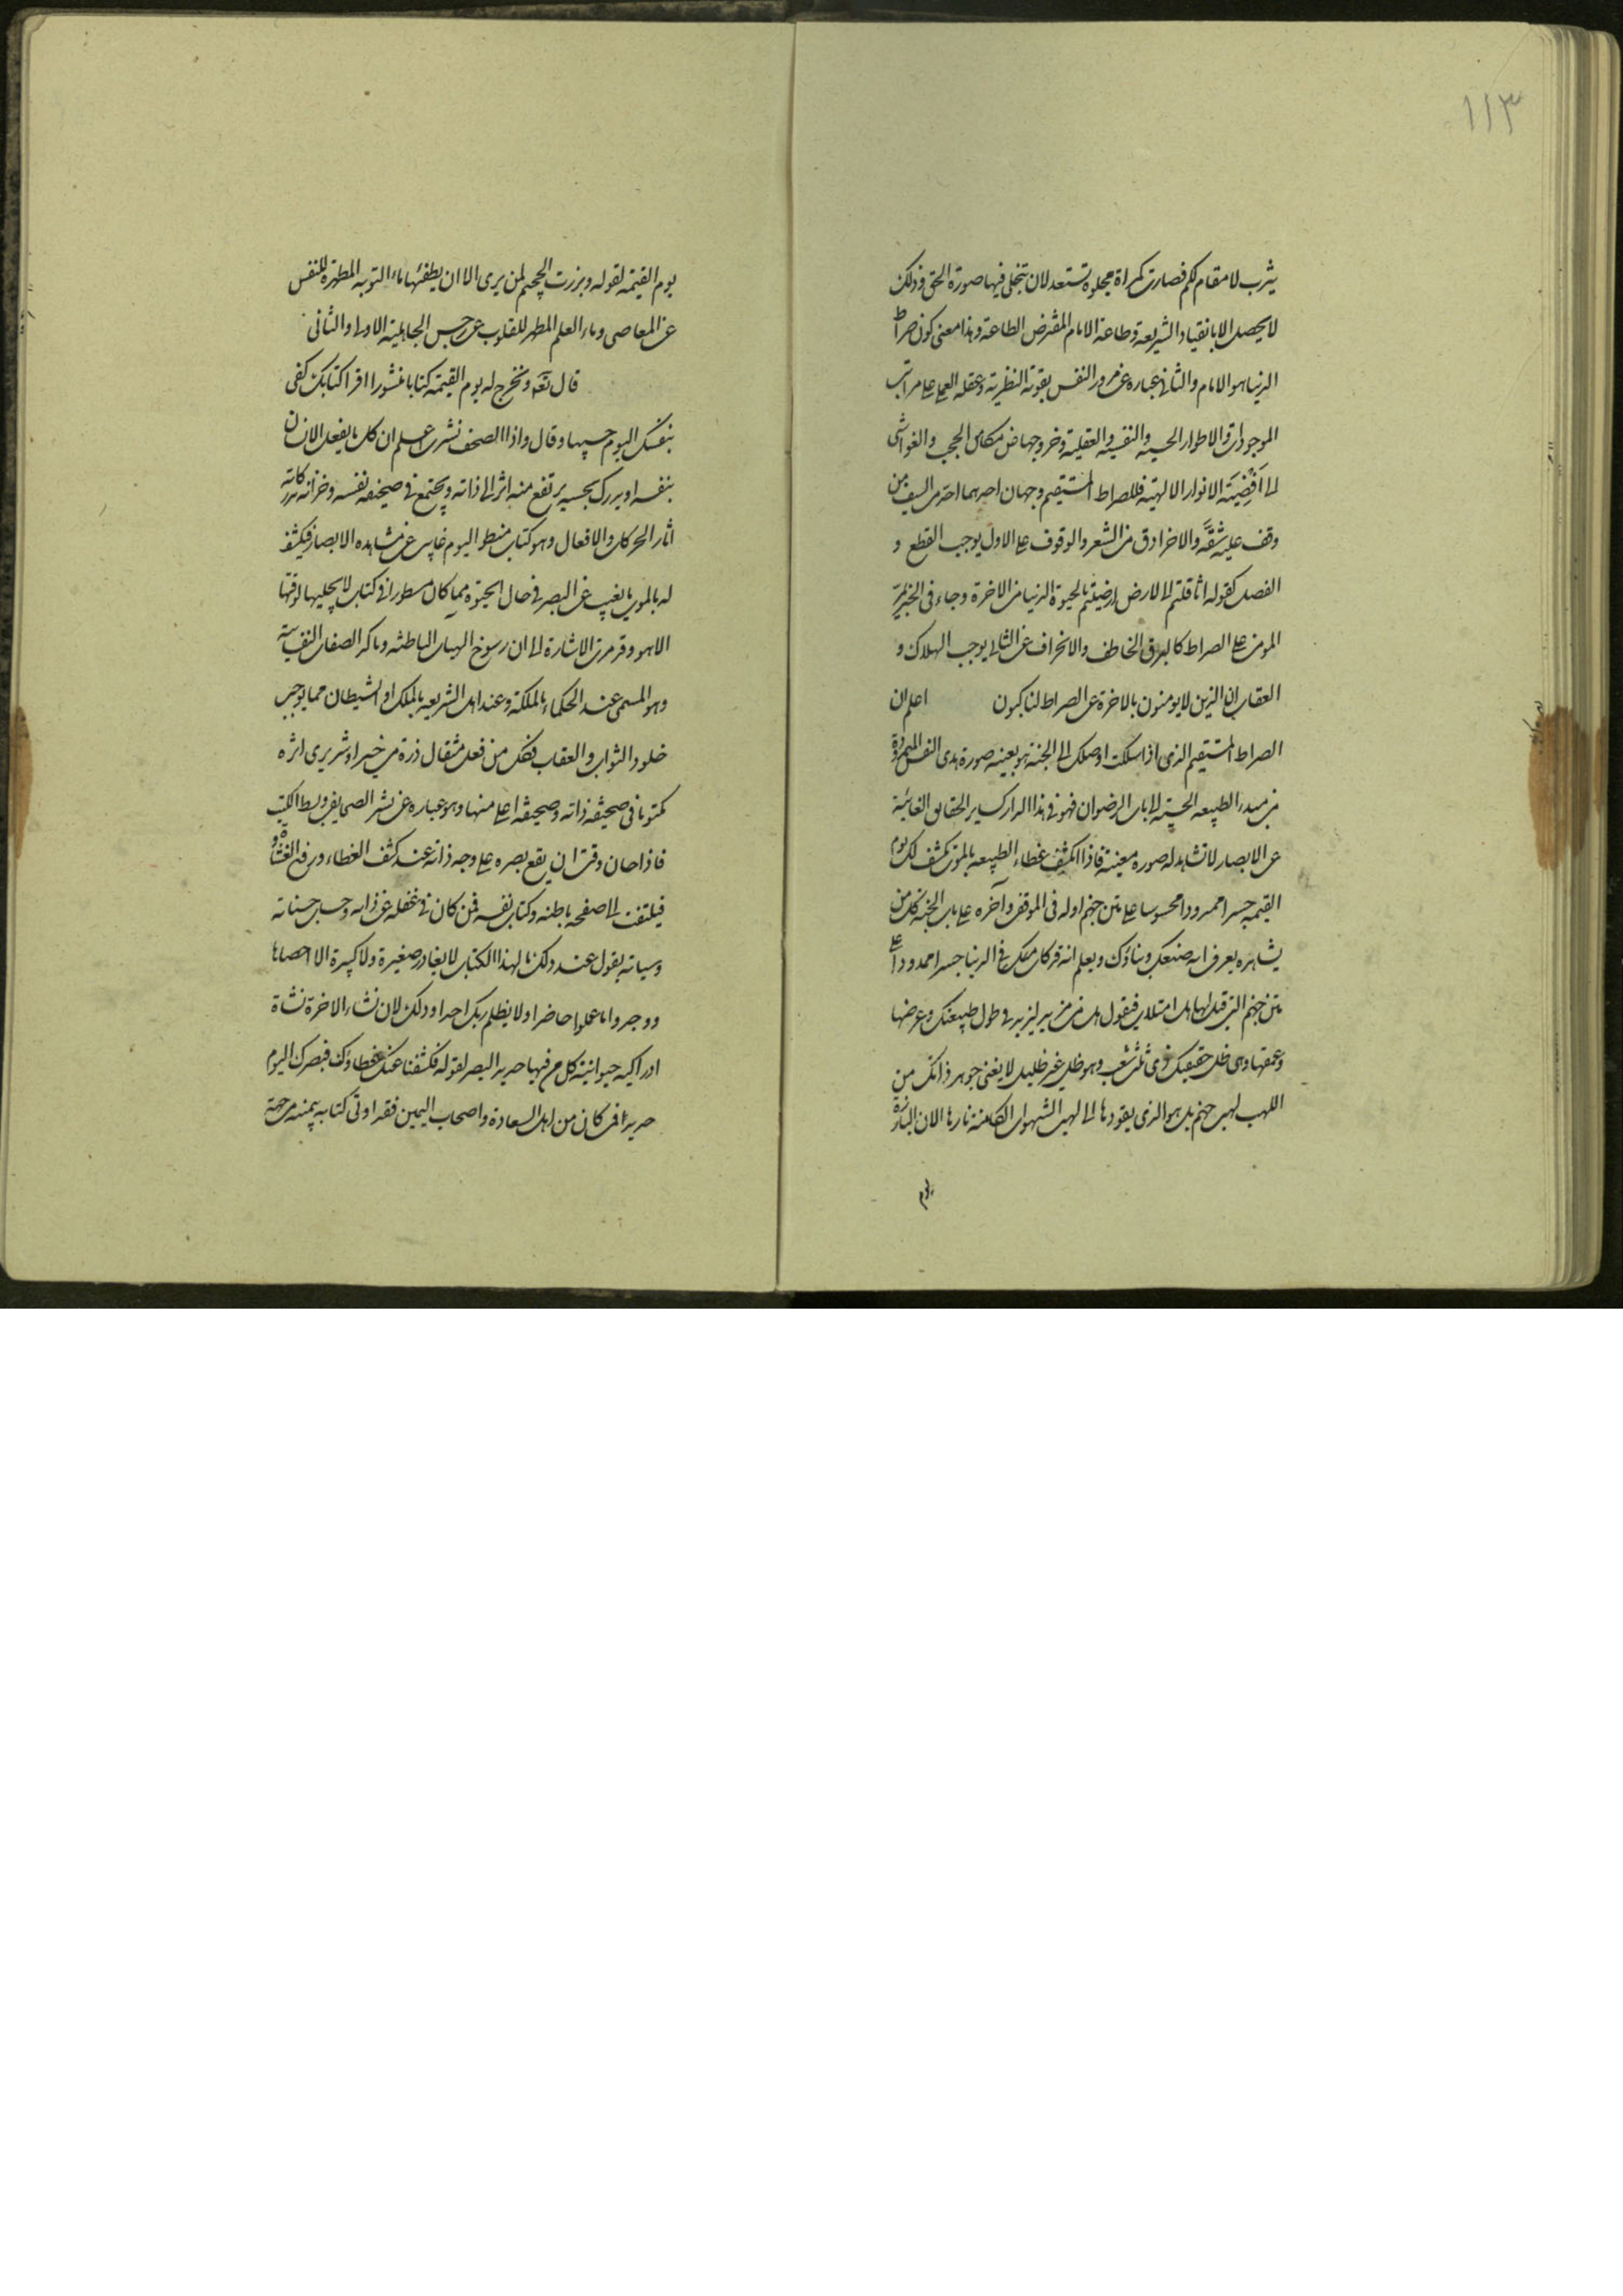 ١١٣
يثرب لا مقام لكم فصارت كمراة مجلوة تستعد لان تتجلى فيها صورة الحق وذلك
لا يحصل الا بانقياد الشريعة وطاعة الامام المفترض الطاعة وهذا معنى كون صراط
الدنيا هو الامام والثانى عبارة عن مرور النفس بقوته النظرية وعقله العملى على مراتب
الموجودات والاطوار الحسية والنفسية والعقلية وخروجها من مكامن الحجب والغواشى
الى افضية الانوار الالهية فللصراط المستقيم وجهان احدهما احد من السيف من
وقف عليه شقّه والاخر ادق من الشعر والوقوف على الاول يوجب القطع و
الفصل كقوله اثاقلتم الى الارض ارضيتم بالحيوة الدنيا من الاخرة وجاء فى الخبر يمر
المومن على الصراط كالبرق الخاطف والانحراف عن الثانى يوجب الهلاك و
العقاب ان الذين لا يومنون بالاخرة عن الصراط لناكبون اعلم ان
الصراط المستقيم الذى اذا سلكت اوصلك الى الجنة هو بعينه صورة هدى النفس الممدودة
من مبدء الطبيعة الحسية الى باب الرضوان فهو فى هذا الدار كساير الحقايق الغائبة
عن الابصار لا تشاهد له صورة معينة فاذا انكشف غطاء الطبيعة بالموت يكشف لك يوم
القيمة جسرا ممدودا محسوسا على متن جهنم اوله فى الموقف وآخره على باب الجنة كل من
يشاهده يعرف انه صنعك وبناؤك ويعلم انه قد كان ملك فى الدنيا جسرا ممدودا على
متن جهنم التى قيل لها هل امتلات فيقول هل من مزيد ليزيد فى طول طبيعتك وعرضها
وعمقها وهى ظل حقيقتك ذى ثلث شعب وهو ظل غير ظليل لا يغنى جوهر ذاتك من
اللهب لهب جهنم بل هو الذى يقودها الى لهيب الشهوات الكامنة نارها الان البارزة
يوم
يوم القيمة لقوله وبرزت الجحيم لمن يرى الا ان يطفئها ماء التوبه المطهرة للنفس
عن المعاصى وماء العلم المطهر للقلوب عن رجس الجاهلية الاولى والثانى
قال تعه ونخرج له يوم القيمة كتابا منشورا اقرا كتابك كفى
بنفسك اليوم حسيبا وقال واذا الصحف نشرت اعلم ان كل ما يفعل الانسان
بنفسه او يدرك بحسه يرتفع منه اثر الى ذاته ويجتمع فى صحيفة نفسه وخزانة مدركاته
اثار الحركات والافعال وهو كتاب منطو اليوم غايب عن مشاهده الابصار فيكشف
له بالموت ما يغيب عن البصر فى حال الحيوة مما كان مسطورا فى كتاب لا يجليها لوقتها
الا هو وقد مرت الاشارة الى ان رسوخ الهيات الباطنه وتاكد الصفات النفسانية
وهو المسمى عند الحكماء بالملكة وعند اهل الشريعه بالملك او الشيطان مما يوجب
خلود الثواب والعقاب فكل من فعل مثقال ذرة من خير او شر يرى اثره
مكتوبا فى صحيفة ذاته وصحيفة اعلى منها وهو عبارة عن نشر الصحايف وبسط الكتب
فاذا حان وقت ان يقع بصره على وجه ذاته عند كشف الغطاء ورفع الغشاوة
فيلتفت الى صفحة باطنه وكتاب نفسه فمن كان فى غفلة عن ذاته وحساب حسناته
وسياته يقول عند ذلك مال هذا الكتاب لا يغادر صغيرة ولا كبيرة الا احصاها
ووجدوا ما عملوا حاضرا ولا يظلم ربك احدا وذلك لان نشاء الاخرة نشاة
ادراكيه حيوانية كل من فيها حديد البصر لقوله فكشفنا عنك غطاؤك فبصرك اليوم
حديد فمن كان من اهل السعادة واصحاب اليمين فقد اوتى كتابه بيمينه من جهة